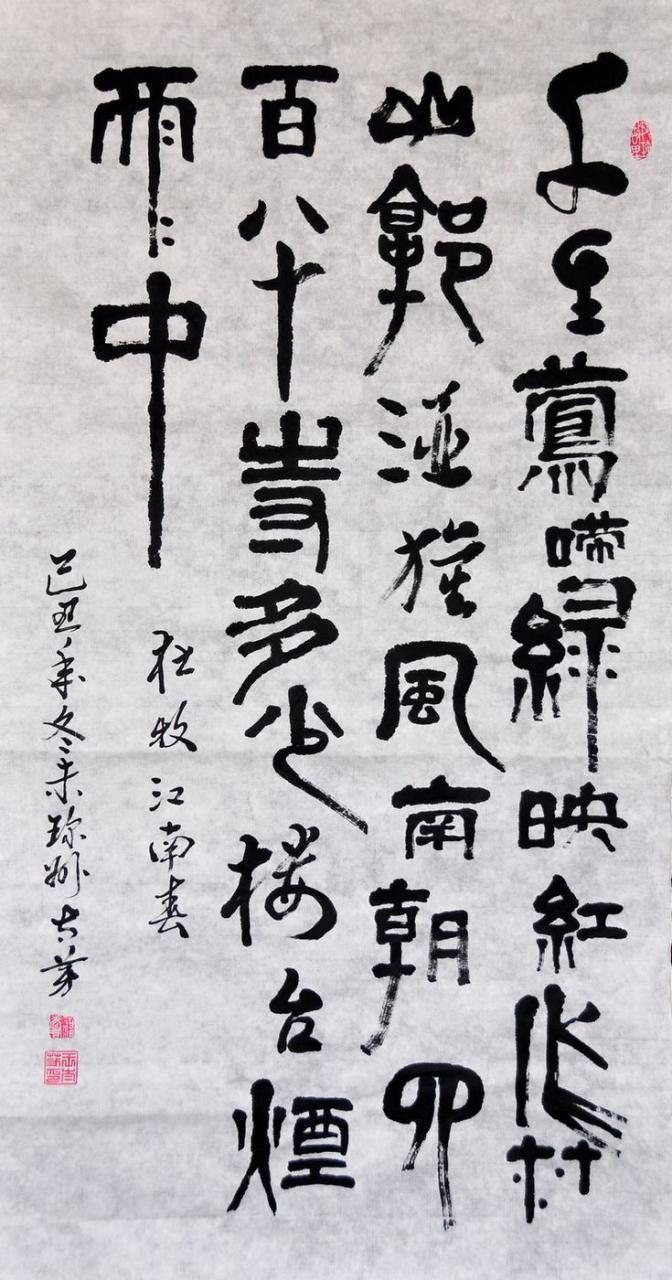 千里鶯啼綠映紅水村
山郭酒旗風南朝四
百八十寺多少楼台煙
雨中
杜牧江南春
己丑年冬末